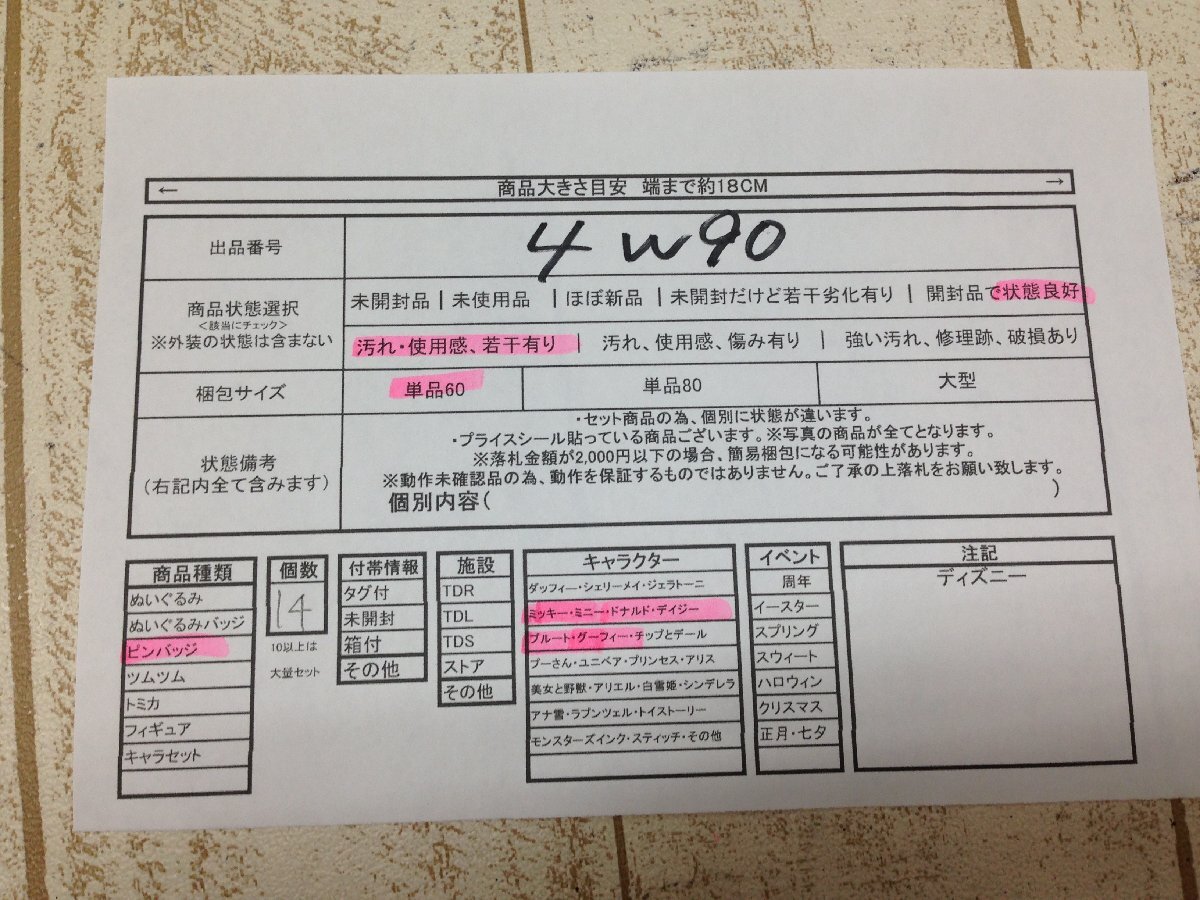 ← 商品大きさ目安 端まで約18CM →
出品番号 4W90
商品状態選択
<該当にチェック>
※外装の状態は含まない
未開封品 | 未使用品 | ほぼ新品 | 未開封だけど若干劣化有り | 開封品で状態良好
汚れ・使用感、若干有り | 汚れ、使用感、傷み有り | 強い汚れ、修理跡、破損あり
梱包サイズ 単品60 単品80 大型
状態備考
(右記内全て含みます)
・セット商品の為、個別に状態が違います。
・プライスシール貼っている商品ございます。※写真の商品が全てとなります。
※落札金額が2,000円以下の場合、簡易梱包になる可能性があります。
※動作未確認品の為、動作を保証するものではありません。ご了承の上落札をお願い致します。
個別内容( )
商品種類
ぬいぐるみ
ぬいぐるみバッジ
ピンバッジ
ツムツム
トミカ
フィギュア
キャラセット
個数
14
10以上は
大量セット
付帯情報
タグ付
未開封
箱付
その他
施設
TDR
TDL
TDS
ストア
その他
キャラクター
ダッフィー・シェリーメイ・ジェラトーニ
ミッキー・ミニー・ドナルド・デイジー
プルート・グーフィー・チップとデール
プーさん・ユニベア・プリンセス・アリス
美女と野獣・アリエル・白雪姫・シンデレラ
アナ雪・ラプンツェル・トイストーリー
モンスターズインク・スティッチ・その他
イベント
周年
イースター
スプリング
スウィート
ハロウィン
クリスマス
正月・七夕
注記
ディズニー